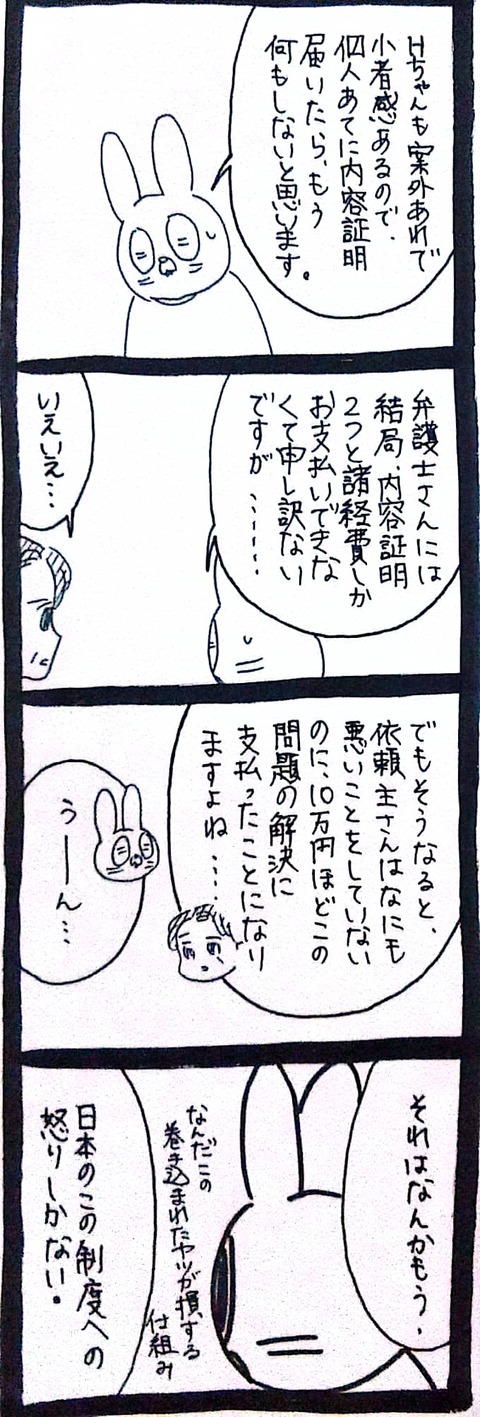 Hちゃんも案外あれで
小者感あるので、
個人あてに内容証明
届いたら、もう
何もしないと思います。
弁護士さんには
結局、内容証明
2つと諸経費しか
お支払いできな
くて申し訳ない
ですが……
いえいえ…
でもそうなると、
依頼主さんはなにも
悪いことをしていない
のに、10万円ほどこの
問題の解決に
支払ったことになり
ますよね…
うーん…
それはなんかもう、
なんだこの
巻き込まれたヤツが損する
仕組み
日本のこの制度への
怒りしかない。